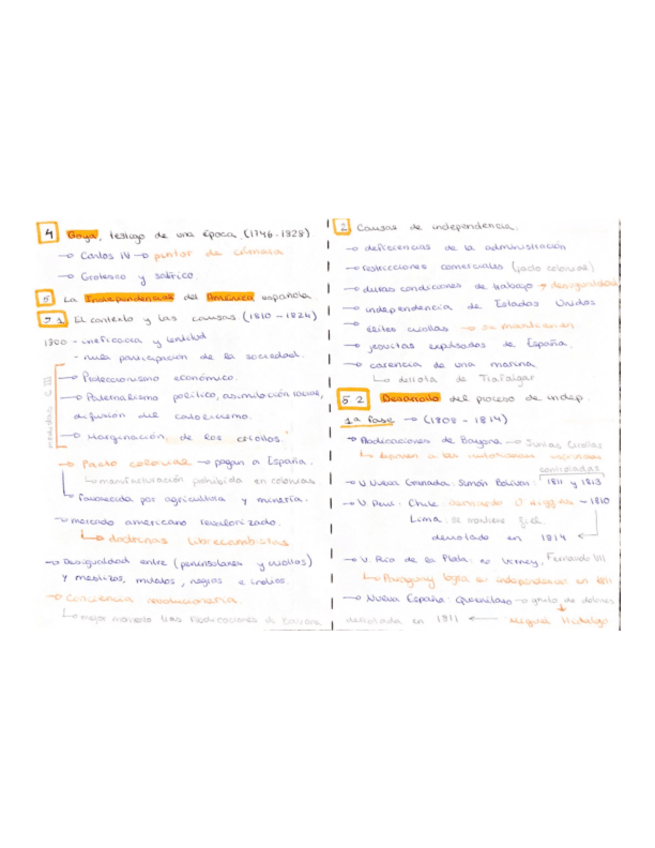 4 Goya, testigo de una época (1746-1828)
→ Carlos IV → pintor de cámara
→ Grotesco y satírico.
5 La Independencia de América española
5.1 El contexto y las causas (1810 - 1824)
1800 - ineficacia y lentitud
- nula participación de la sociedad.
medidas C III
→ Proteccionismo económico.
→ Paternalismo político, asimilación social,
difusión del catolicismo.
→ Marginación de los criollos.
→ Pacto colonial → pagan a España.
↳ manufacturación prohibida en colonias
↳ favorecida por agricultura y minería.
→ mercado americano revalorizado.
↳ doctrinas librecambistas
→ Desigualdad entre (peninsulares y criollos)
y mestizos, mulatos, negros e indios.
→ Conciencia revolucionaria.
↳ mejor momento tras Abdicaciones de Bayona
2 Causas de independencia.
→ deficiencias de la administración
→ restricciones comerciales (pacto colonial)
→ duras condiciones de trabajo → desigualdad
→ independencia de Estados Unidos
→ élites criollas → se mantienen
→ jesuitas expulsados de España.
→ carencia de una marina.
↳ derrota de Trafalgar
5.2 Desarrollo del proceso de indep.
1ª fase → (1808 - 1814)
→ Abdicaciones de Bayona → Juntas Criollas
↳ llaman a las
controladas
→ V. Nueva Granada: Simón Bolívar: 1811 y 1813
→ V. Perú: Chile: Bernardo O'Higgins → 1810
Lima: se mantiene fiel
derrotado en 1814 ←
→ V. Río de la Plata: Fernando VII
↳ Paraguay logra su independencia en 1811
→ Nueva España: → grito de dolores
derrotada en 1811 ← Miguel Hidalgo